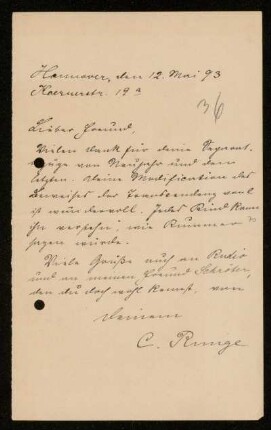 Hannover, den 12. Mai 93
Koernerstr. 19 a
36
Lieber Freund,
Vielen Dank für deine Separat-
züge von Neujahr und den
letzten. Deine Modification des
Beweises der Transcendenz von
ist wundervoll. Jedes Kind kann
ihn verstehen, wie Kummer
sagen würde.
Viele Grüße auch an Rudio
und an meinen Freund Schröter,
den du doch wohl kennst, von
Deinem
C. Runge